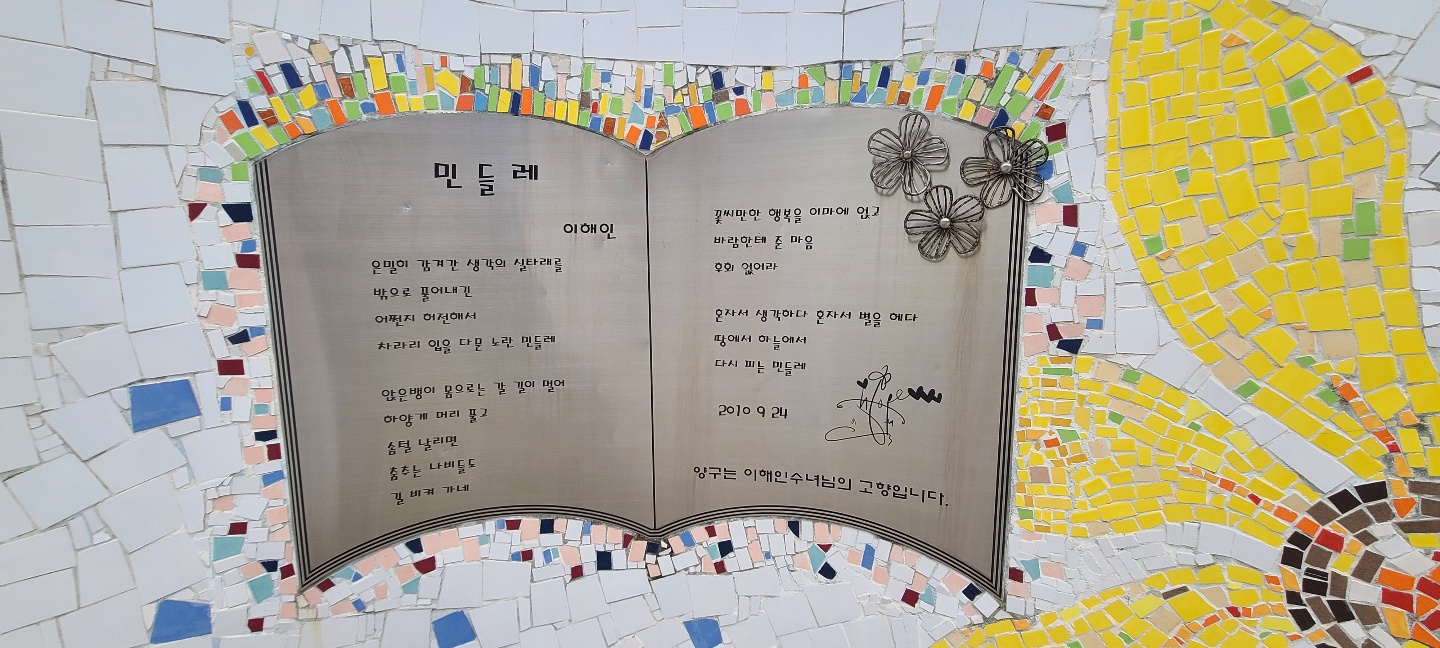 민들레
이해인
은밀히 감겨간 생각의 실타래를
밖으로 풀어내긴
어쩐지 허전해서
차라리 입을 다문 노란 민들레
앉은뱅이 몸으로는 갈 길이 멀어
하얗게 머리 풀고
솜털 날리면
춤추는 나비들도
길 비켜 가네
꽃씨만한 행복을 이마에 얹고
바람한테 준 마음
후회 없어라
혼자서 생각하다 혼자서 별을 헤다
땅에서 하늘에서
다시 피는 민들레
2010 9 24
양구는 이해인수녀님의 고향입니다.